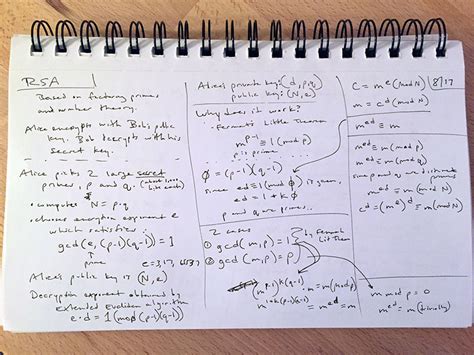 RSA
Based on factoring primes
and number theory.
Alice encrypts with Bob's public
key. Bob decrypts with his
secret key.
Alice picks 2 large secret
primes, p and q. (about
bits each)
• computes N = p·q
• chooses encryption exponent e
which satisfies:
gcd(e, (p-1)(q-1)) = 1
prime e=3,17, 65537
Alice's public key is (N, e)
Decryption exponent obtained by
Extended Euclidean Algorithm
e·d = 1 (mod (p-1)(q-1))
Alice's private key: (d, p, q)
public key: (N, e)
Why does it work?
- Fermat's Little Theorem
m^p-1 ≡ 1 (mod p)
p is prime
φ = (p-1)(q-1)
since ed ≡ 1 (mod φ) is given,
ed = 1 + kφ
p and q are primes..
2 cases
① gcd(m, p) = 1 } by Fermat
Lit Thm
② gcd(m, p) = p
m^(p-1)k(q-1) ≡ m (mod p)
m^1+k(p-1)(q-1) = m^ed ≡ m
8/17
c = m^e (mod N)
m = c^d (mod N)
m^ed ≡ m
m^ed ≡ m (mod p)
m^ed ≡ m (mod q)
since p and q are distinct
primes
m^ed ≡ m (mod N)
c^d = (m^e)^d ≡ m (mod N)
m mod p = 0
m^ed ≡ m (trivially)